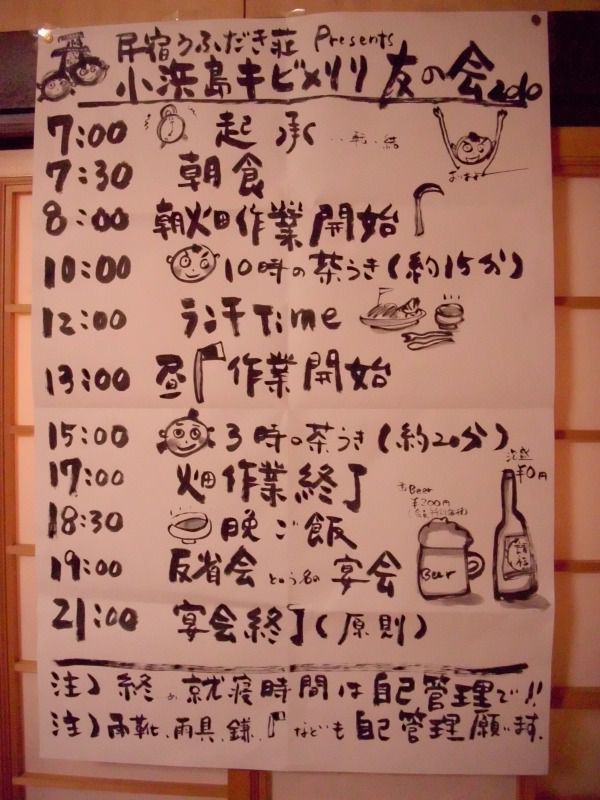 民宿うふだき荘 Presents
小浜島キビメリリ友の会2010
7:00 起承・・転・結
7:30 朝食
8:00 朝畑作業開始
10:00 10時の茶うき(約15分)
12:00 ランチTime
13:00 昼作業開始
15:00 3時の茶うき(約20分)
17:00 畑作業終了
18:30 晩ご飯
19:00 反省会という名の宴会
21:00 宴会終了(原則)
生Beer
¥200円
Beer
泡盛
¥0円
注)終の就寝時間は自己管理で!!
注)雨靴、雨具、鎌、なども自己管理願います。